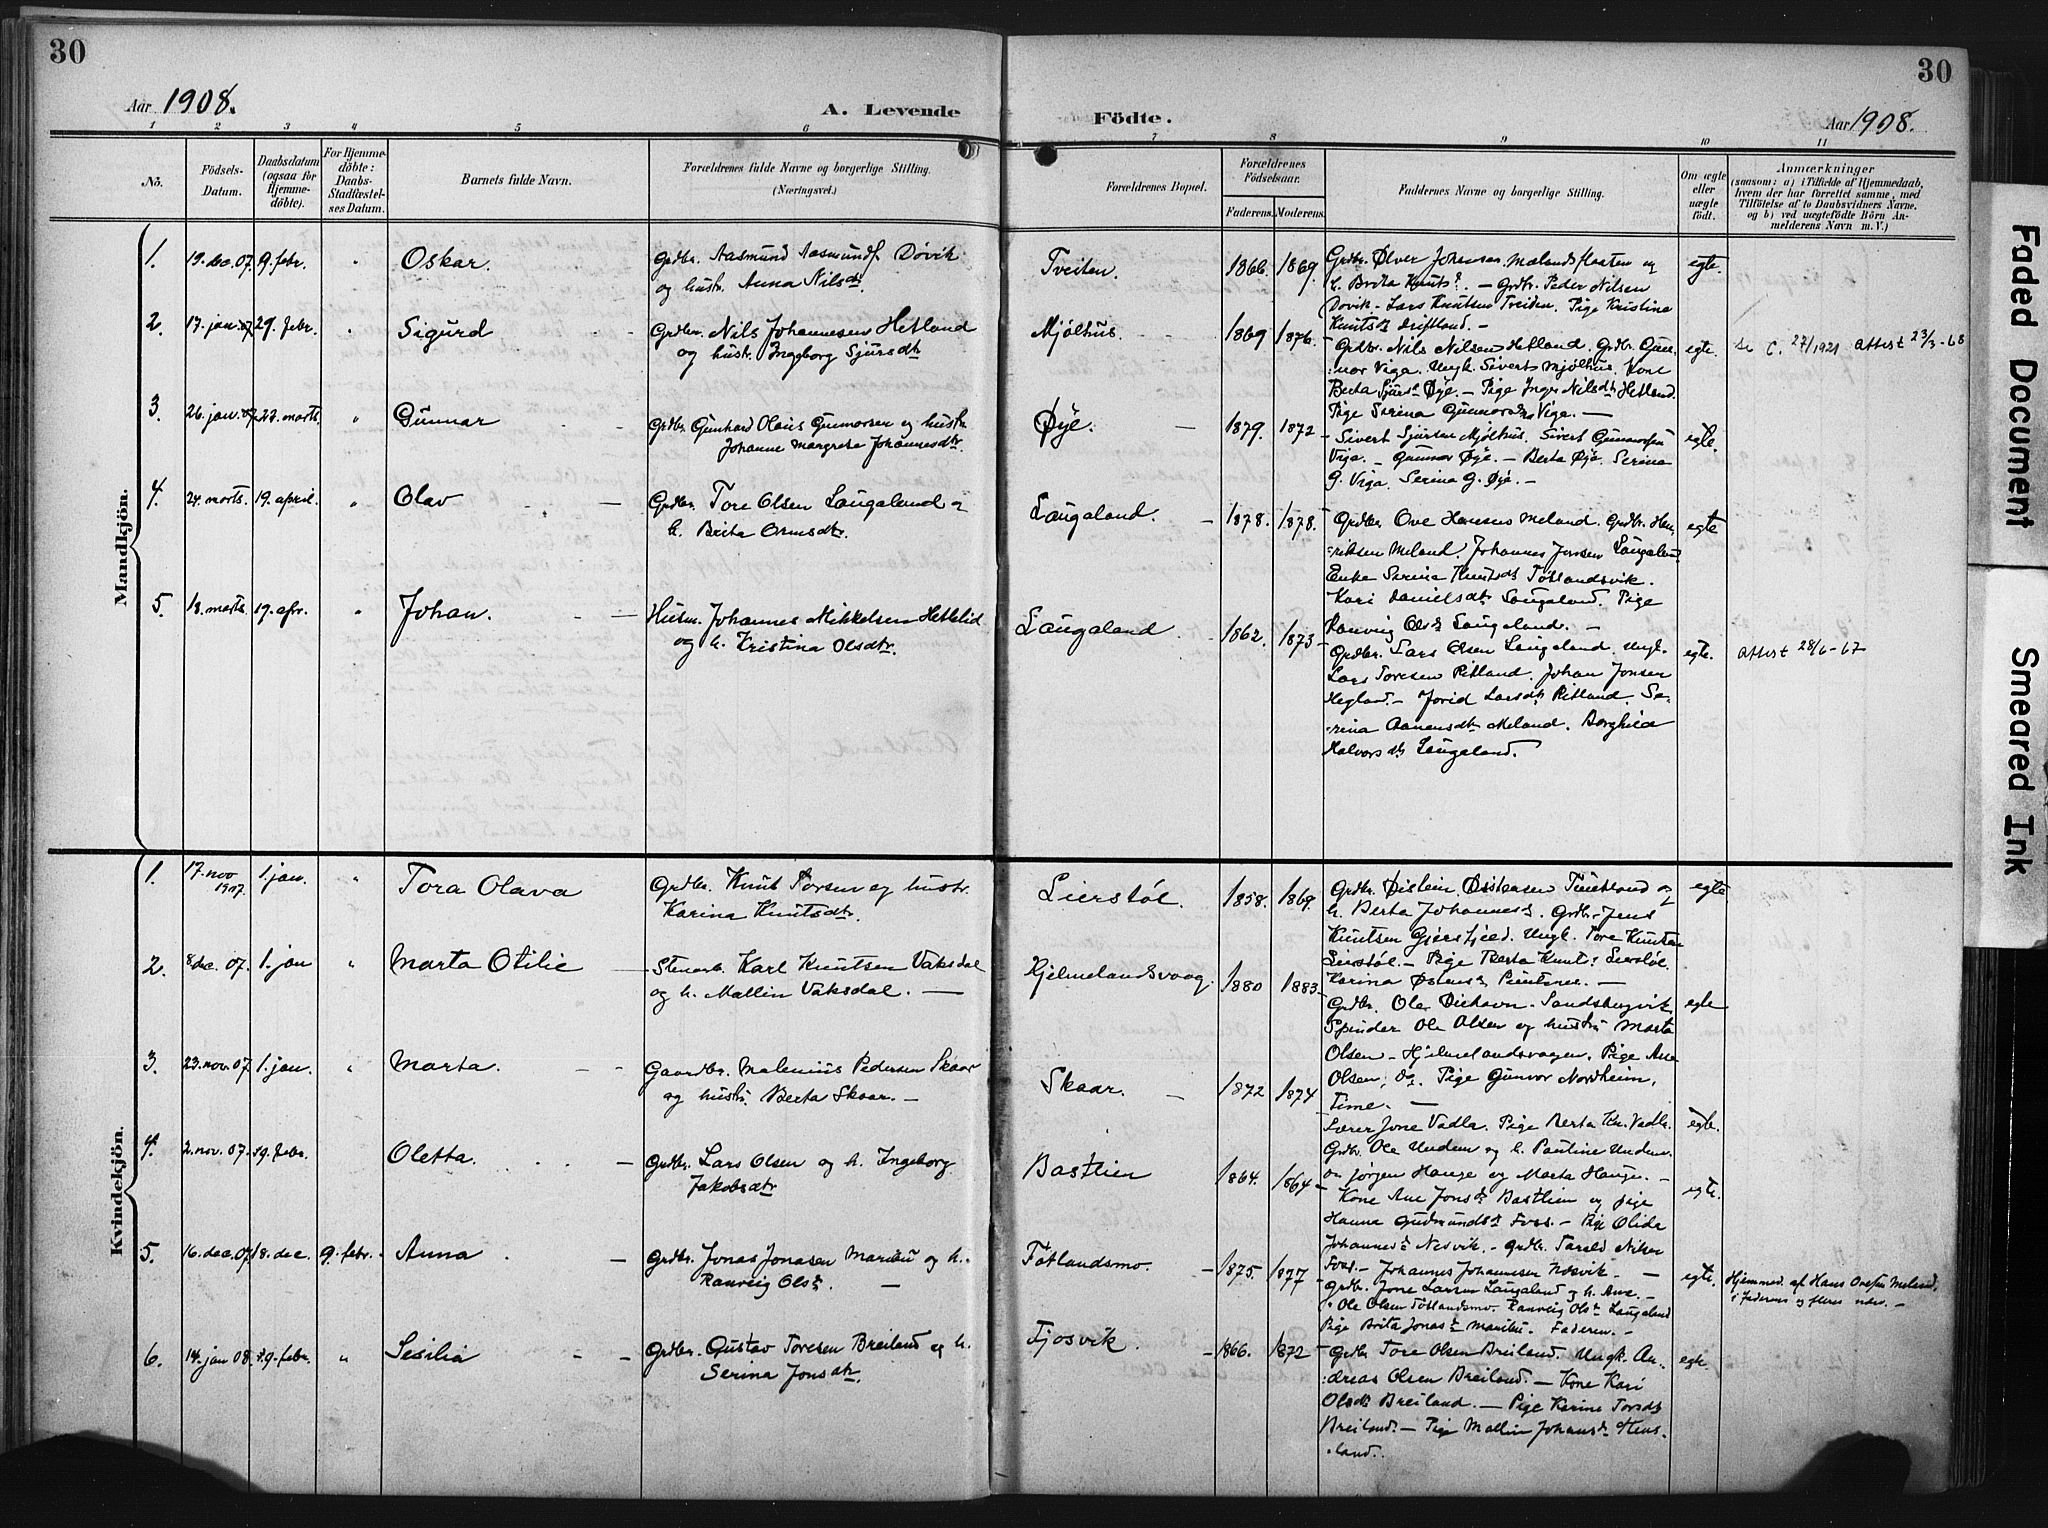 30
30
Aar 1908.
A. Levende
Födte.
Aar 1908.
1 2 3 4 5 6 7 8 9 10 11
No.
Födsels-
Datum.
Daabsdatum
(ogsaa for
Hjemme-
döbte).
For Hjemme-
döbte:
Daabs-
Stadfæstel-
ses Datum.
Barnets fulde Navn.
Forældrenes fulde Navne og borgerlige Stilling.
(Næringsvei.)
Forældrenes Bopæl.
Forældrenes
Födselsaar.
Faderens. Moderens.
Faddernes Navne og borgerlige Stilling.
Om ægte
eller
uægte
født.
Anmærkninger
(saasom: a) i Tilfælde af Hjemmedaab,
hvem der har forrettet samme, med
Tilföielse af to Daabsvidners Navne.
og b) ved uægtefödte Börn An-
melderens Navn m. V.)
Mandkjön.
1. 13. dec. 07. 9. febr. " Oskar.
Grdbr. Aasmund Aasmundf. Døvik
og hustr. Anna Nilsdtr.
Tveiten. 1866. 1869.
Grdbr. Ølver Johansen Mælandsflaaten og
h. Brita Knutsd. - Grdbr. Peder Nilsen
Døvik. Lars Knutsen Treiden. Pige Kristina
Knutsd.
egte.
2. 17. jan. 07. 29. febr. " Sigurd
Grdbr. Nils Johannesen Hetland
og hustr. Ingeborg Sjursdtr.
Mjølhus. 1869 1876.
Grdbr. Nils Nilsen Hetland. Grdbr. Gun-
nar Viga. Ungk. Sivert Mjølhus. Kone
Berta Sjursd. Øye. - Pige Inger Nilsdtr. Hetland.
Pige Serina Gunnarsd. Viga. -
egte. se C. 27/1921 attest 23/3-68
3. 26. jan. 07. 22. marts. " Gunnar
Grdbr. Gunhard Olaus Gunnarsen og hustr.
Johanne Margrete Johannesdtr.
Øye. 1879. 1872
Sivert Sjursen Mjølhus. Sivert Gunnarsen
Viga. - Gunnar Øye. - Berta Øye. Serina
G. Viga. Serina G. Øye. -
egte.
4. 24. marts. 19. april. " Olav
Grdbr. Tore Olsen Laugaland og
h. Brita Ormsdtr.
Laugaland. 1878. 1878.
Grdbr. Ove Hansen Meland. Grdbr. Hen-
riksen Meland. Johannes Jonsen Laugaland
Enke Serina Knutsdtr. Tøtlandsvik.
Kari Danielsdtr. Laugaland. Pige
Ranveig Olsd. Laugaland. -
egte
5. 18. marts. 19. apr. " Johan.
Husm. Johannes Mikkelsen Hettelid
og h. Kristina Olsdtr.
Laugaland. 1862. 1873
Grdbr. Lars Olsen Laugaland. Ungk.
Lars Toresen Ritland. Johan Jonsen
Hegland. - Jorid Larsdtr. Ritland. Se-
rina Aanensdtr. Meland. Borghild
Halvorsdtr. Laugaland.
egte. attest 28/6-67
Kvindekjön.
1. 17. nov 1907. 1. jan. " Tora Olava
Grdbr. Knut Torsen og hustr.
Karina Knutsdtr.
Lierstøl. 1858. 1869.
Grdbr. Øistein Østensen Tuntland og
h. Berta Johannesd. Grdbr. Jens
Knutsen Gjersfjeld. Ungk. Tore Knutsen
Lierstøl. - Pige Berta Knutsd. Lierstøl.
Karina
egte
2. 8 dec. 07. 1. jan " Marta Otilie
Karl Knutsen Vaksdal
og h. Mallin Vaksdal. -
Hjelmelandsvaag. 1880 1883
Grdbr. Ole
Ole Olsen og hustr. Marta
Olsen - Hjelmelandsvagen. Pige Ane
Olsen, og Pige Gunvor Nordheim,
Time. -
egte
3. 23. nov. 07. 1. jan. " Marta.
Gaardbr. Malenius Pedersen Skaar
og hustr. Berta Skaar. -
Skaar. 1872 1874
Lærer Jone Vadla. Pige Berta Kn. Vadla.
Grdbr. Ole Undem og h. Pauline Undem.
Jørgen Hauge og Marta Hauge. -
egte.
4. 2. nov. 07. 9. febr. Oletta.
Grdbr. Lars Olsen og h. Ingeborg
Jakobsdtr.
Bastlien 1864. 1864
Kone Ane Jonsd. Bastlien og pige
Hanna Gudmundsd. Foss. - Pige Olida
Johannesd. Nesvik. - Grdbr. Nilsen
Foss - Johannes Johannesen Nesvik. -
egte.
5. 16. dec. 07. 18. dec. 9. febr. Anna
Grdbr. Jonas Jonasen Maribu og h.
Ranveig Olsd. -
Tøtlandsmo. 1875. 1877
Grdbr. Jone Larsen Laugaland og h. Ane. -
Ole Olsen Tøtlandsmo. Ranveig Olsd. Laugaland
Pige Brita Jonasd. Maribu. Faderen. -
egte. Hjemmed. af Hans Ovesen Meland,
i Faderens og fleres nærv. -
6. 14. jan 08. 9. febr. " Sesilia
Grdbr. Gustav Toresen Breiland og h.
Serina Jonsdtr.
Fjosvik. 1866. 1872
Grdbr. Tore Olsen Breiland. Ungk. An-
dreas Olsen Breiland. - Kone Kari
Olsdtr. Breiland. - Pige Karine Torsdtr.
Breiland. - Pige Mallin Johansd. Hens-
land.
egte.
Faded Document
Smeared Ink